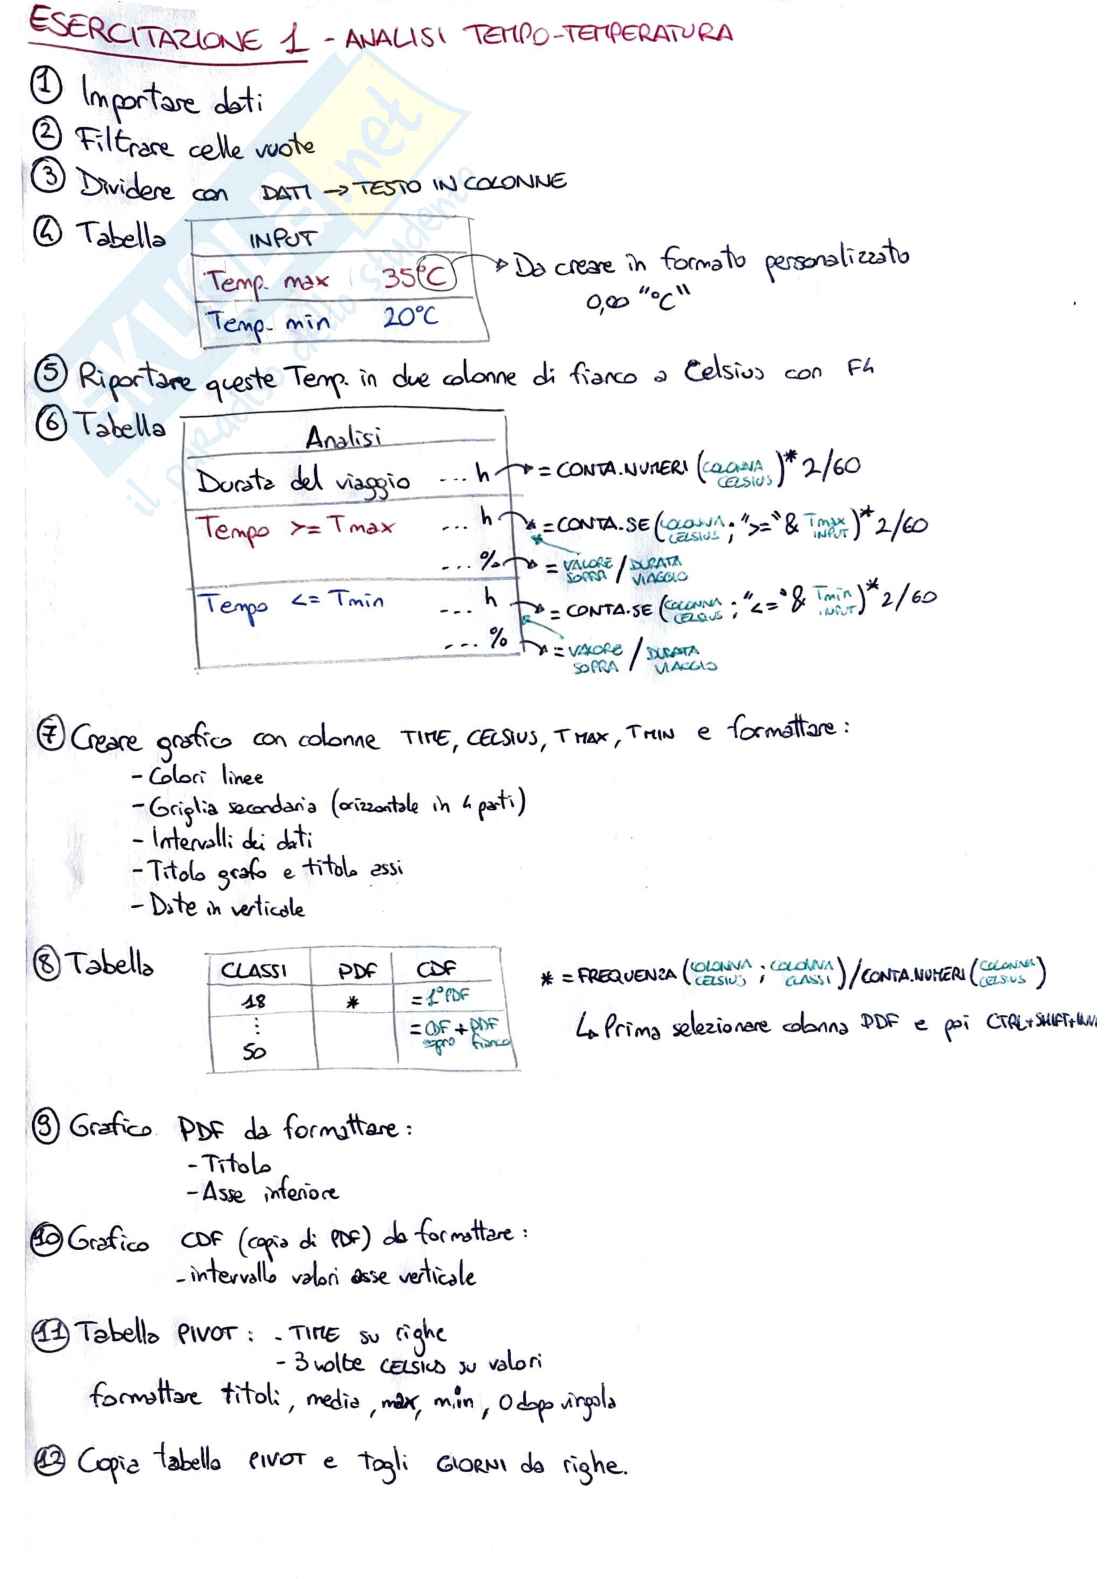 ESERCITAZIONE 1 - ANALISI TEMPO-TEMPERATURA
① Importare dati
② Filtrare celle vuote
③ Dividere con DATI → TESTO IN COLONNE
④ Tabella
INPUT
Temp. max 35°C → Da creare in formato personalizzato
0,00 "°C"
Temp. min 20°C
⑤ Riportare queste Temp. in due colonne di fianco a Celsius con F4
⑥ Tabella
Analisi
Durata del viaggio ... h → = CONTA.NUMERI (COLONNA CELSIUS) * 2/60
Tempo >= Tmax ... h → = CONTA.SE (COLONNA CELSIUS ; ">=" & Tmax INPUT) * 2/60
... % → = VALORE SOPRA / DURATA VIAGGIO
Tempo <= Tmin ... h → = CONTA.SE (COLONNA CELSIUS ; "<=" & Tmin INPUT) * 2/60
... % → = VALORE SOPRA / DURATA VIAGGIO
⑦ Creare grafico con colonne TIME, CELSIUS, TMAX, TMIN e formattare :
- Colori linee
- Griglia secondaria (orizzontale in 4 parti)
- Intervalli dei dati
- Titolo grafo e titolo assi
- Date in verticale
⑧ Tabella
CLASSI PDF CDF
18 * = 1° PDF
⋮ = CDF sopra + PDF fianco
50
* = FREQUENZA (COLONNA CELSIUS ; COLONNA CLASSI) / CONTA.NUMERI (COLONNA CELSIUS)
↳ Prima selezionare colonna PDF e poi CTRL+SHIFT+INVI
⑨ Grafico PDF da formattare :
- Titolo
- Asse inferiore
⑩ Grafico CDF (copia di PDF) da formattare :
- intervallo valori asse verticale
⑪ Tabella PIVOT : - TIME su righe
- 3 volte CELSIUS su valori
formattare titoli, media, max, min, 0 dopo virgola
⑫ Copia tabella PIVOT e togli GIORNI da righe.
SKUOLA.net
il paradiso dello studente